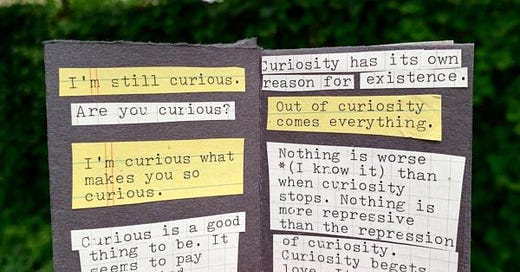 I'm still curious.
Are you curious?
I'm curious what
makes you so
curious.
Curious is a good
thing to be. It
seems to pay
Curiosity has its own
reason for existence.
Out of curiosity
comes everything.
Nothing is worse
*(I know it) than
when curiosity
stops. Nothing is
more repressive
than the repression
of curiosity.
Curiosity begets